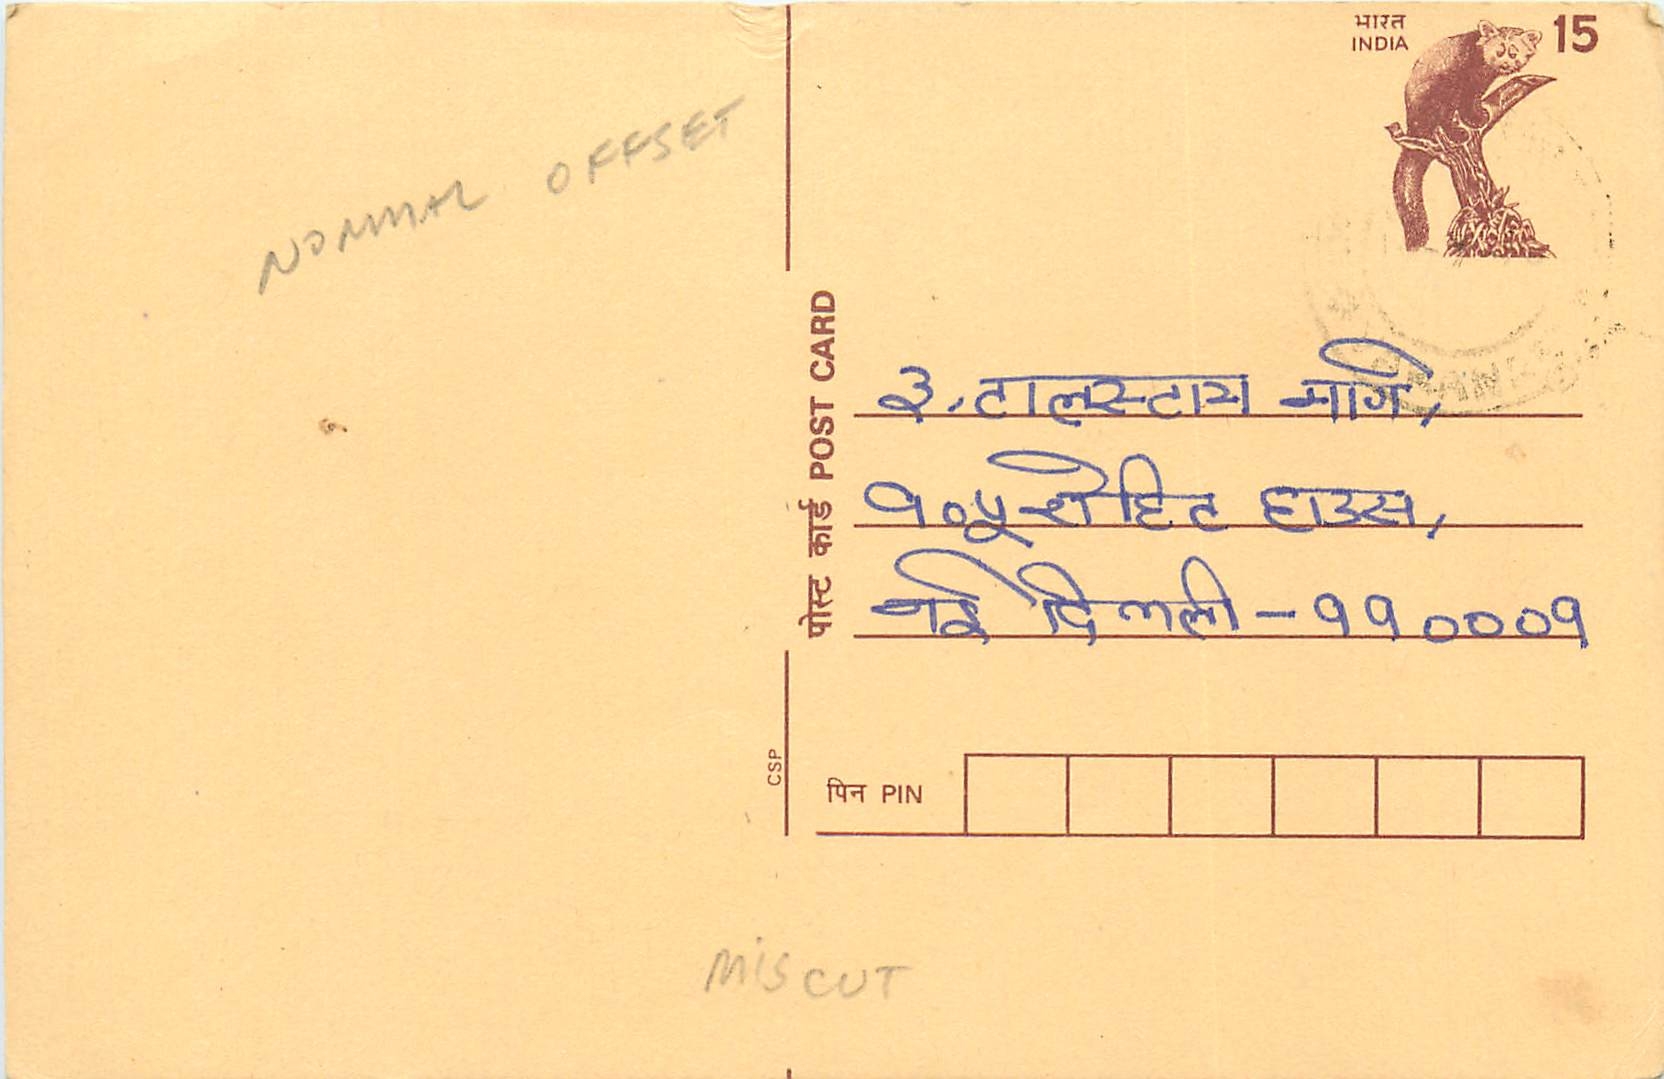 भारत
INDIA
15
NORMAL OFFSET
पोस्ट कार्ड POST CARD
३, टालस्टाय मार्ग,
१०पूरोहित हाउस,
नई दिल्ली - ११०००१
CSP
पिन PIN
MISCUT